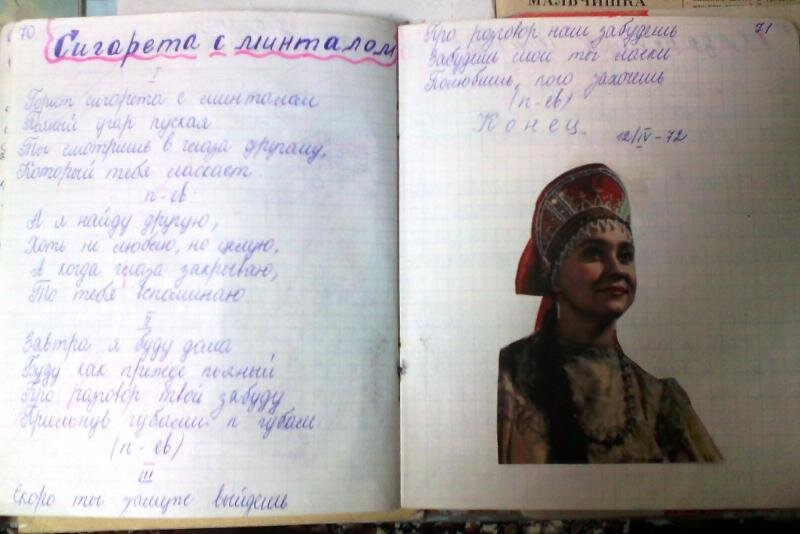 70
Сигарета с минталом
I
Горит сигарета с минталом
Пьяный угар пуская
Ты смотришь в глаза другому,
Который тебя ласкает
п-ев
А я найду другую,
Хоть не люблю, но целую,
А когда глаза закрываю,
То тебя вспоминаю
II
Завтра я буду дома
Буду как прежде пьяный
Про разговор твой забуду
Прильнув губами к губам
(п-ев)
III
Скоро ты замуж выйдешь
МАЛЬЧИШКА
71
Про разговор наш забудешь
Забудешь мои ты ласки
Полюбишь, кого захочешь
(п-ев)
Конец
12/IV-72